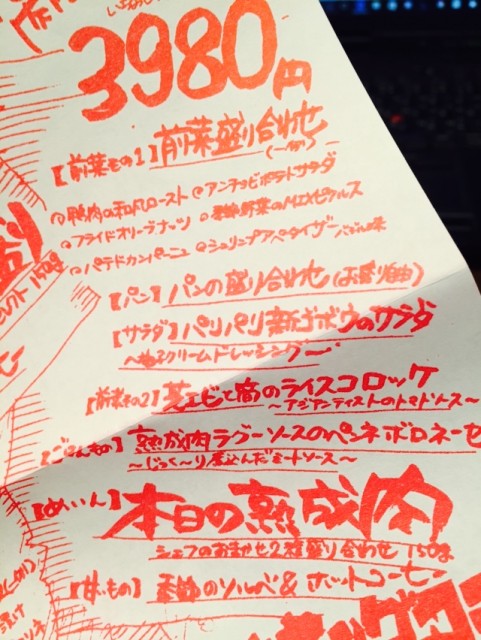 3980円
【前菜その1】前菜盛り合わせ
(一例)
@鴨肉の和風ロースト @アンチョビポテトサラダ
@フライドオリーブナッツ @季節野菜のMIXピクルス
@パテドカンパーニュ @シュリンプアペタイザーバジル味
【パン】パンの盛り合わせ(お替り自由)
【サラダ】パリパリ新ゴボウのサラダ
クリームドレッシング〜
【前菜その2】芝エビと筍のライスコロッケ
〜アジアンテイストのトマトソース〜
【ごはんもの】熟成肉ラグーソースのペンネボロネーゼ
〜じっく〜り煮込んだミートソース〜
【めいん】本日の熟成肉
シェフのおまかせ2種盛り合わせ 150g
【甘いもの】季節のソルベ&ホットコーヒー
150g